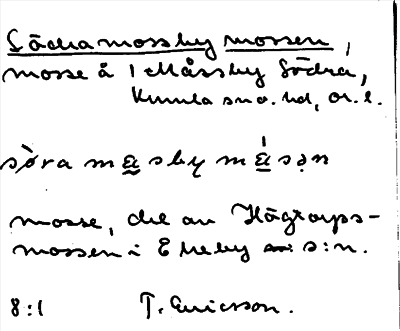 Södra mossby mossen,
mosse å 1 Måssby Södra,
Kumla sn o. hd, Ör. l.
söra må̤sby må̤sən
mosse, del av Högtorps-
mossen i Ekeby s:n.
8:1 T. Ericsson.